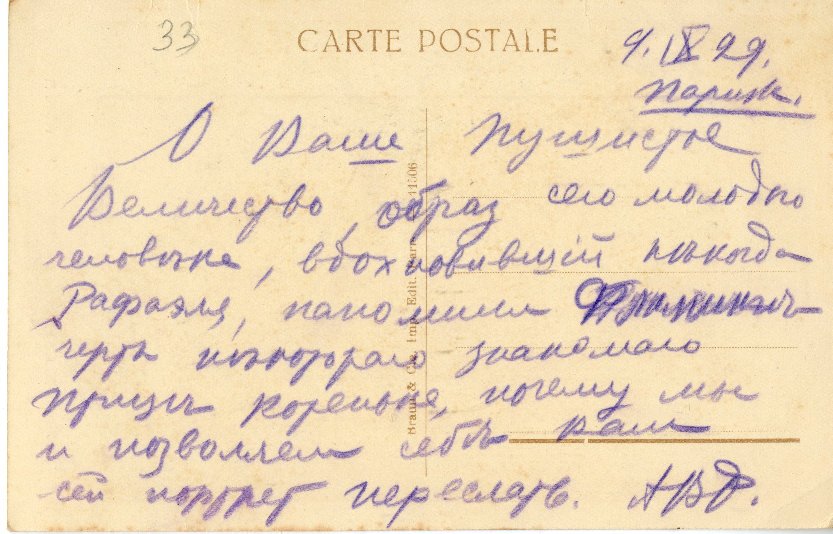 33
CARTE POSTALE
9. IX 29.
Париж.
О Ваше Пушистое
Величество, образ сего молодого
человѣка, вдохновившій нѣкогда
Рафаэля, напомнил
черты нѣкотораго знакомаго
принца кореньке, почему мы
и позволяем себѣ вам
сей портрет переслать. АВФ.
Braun & Cie, Imp. Edit. Paris 41506